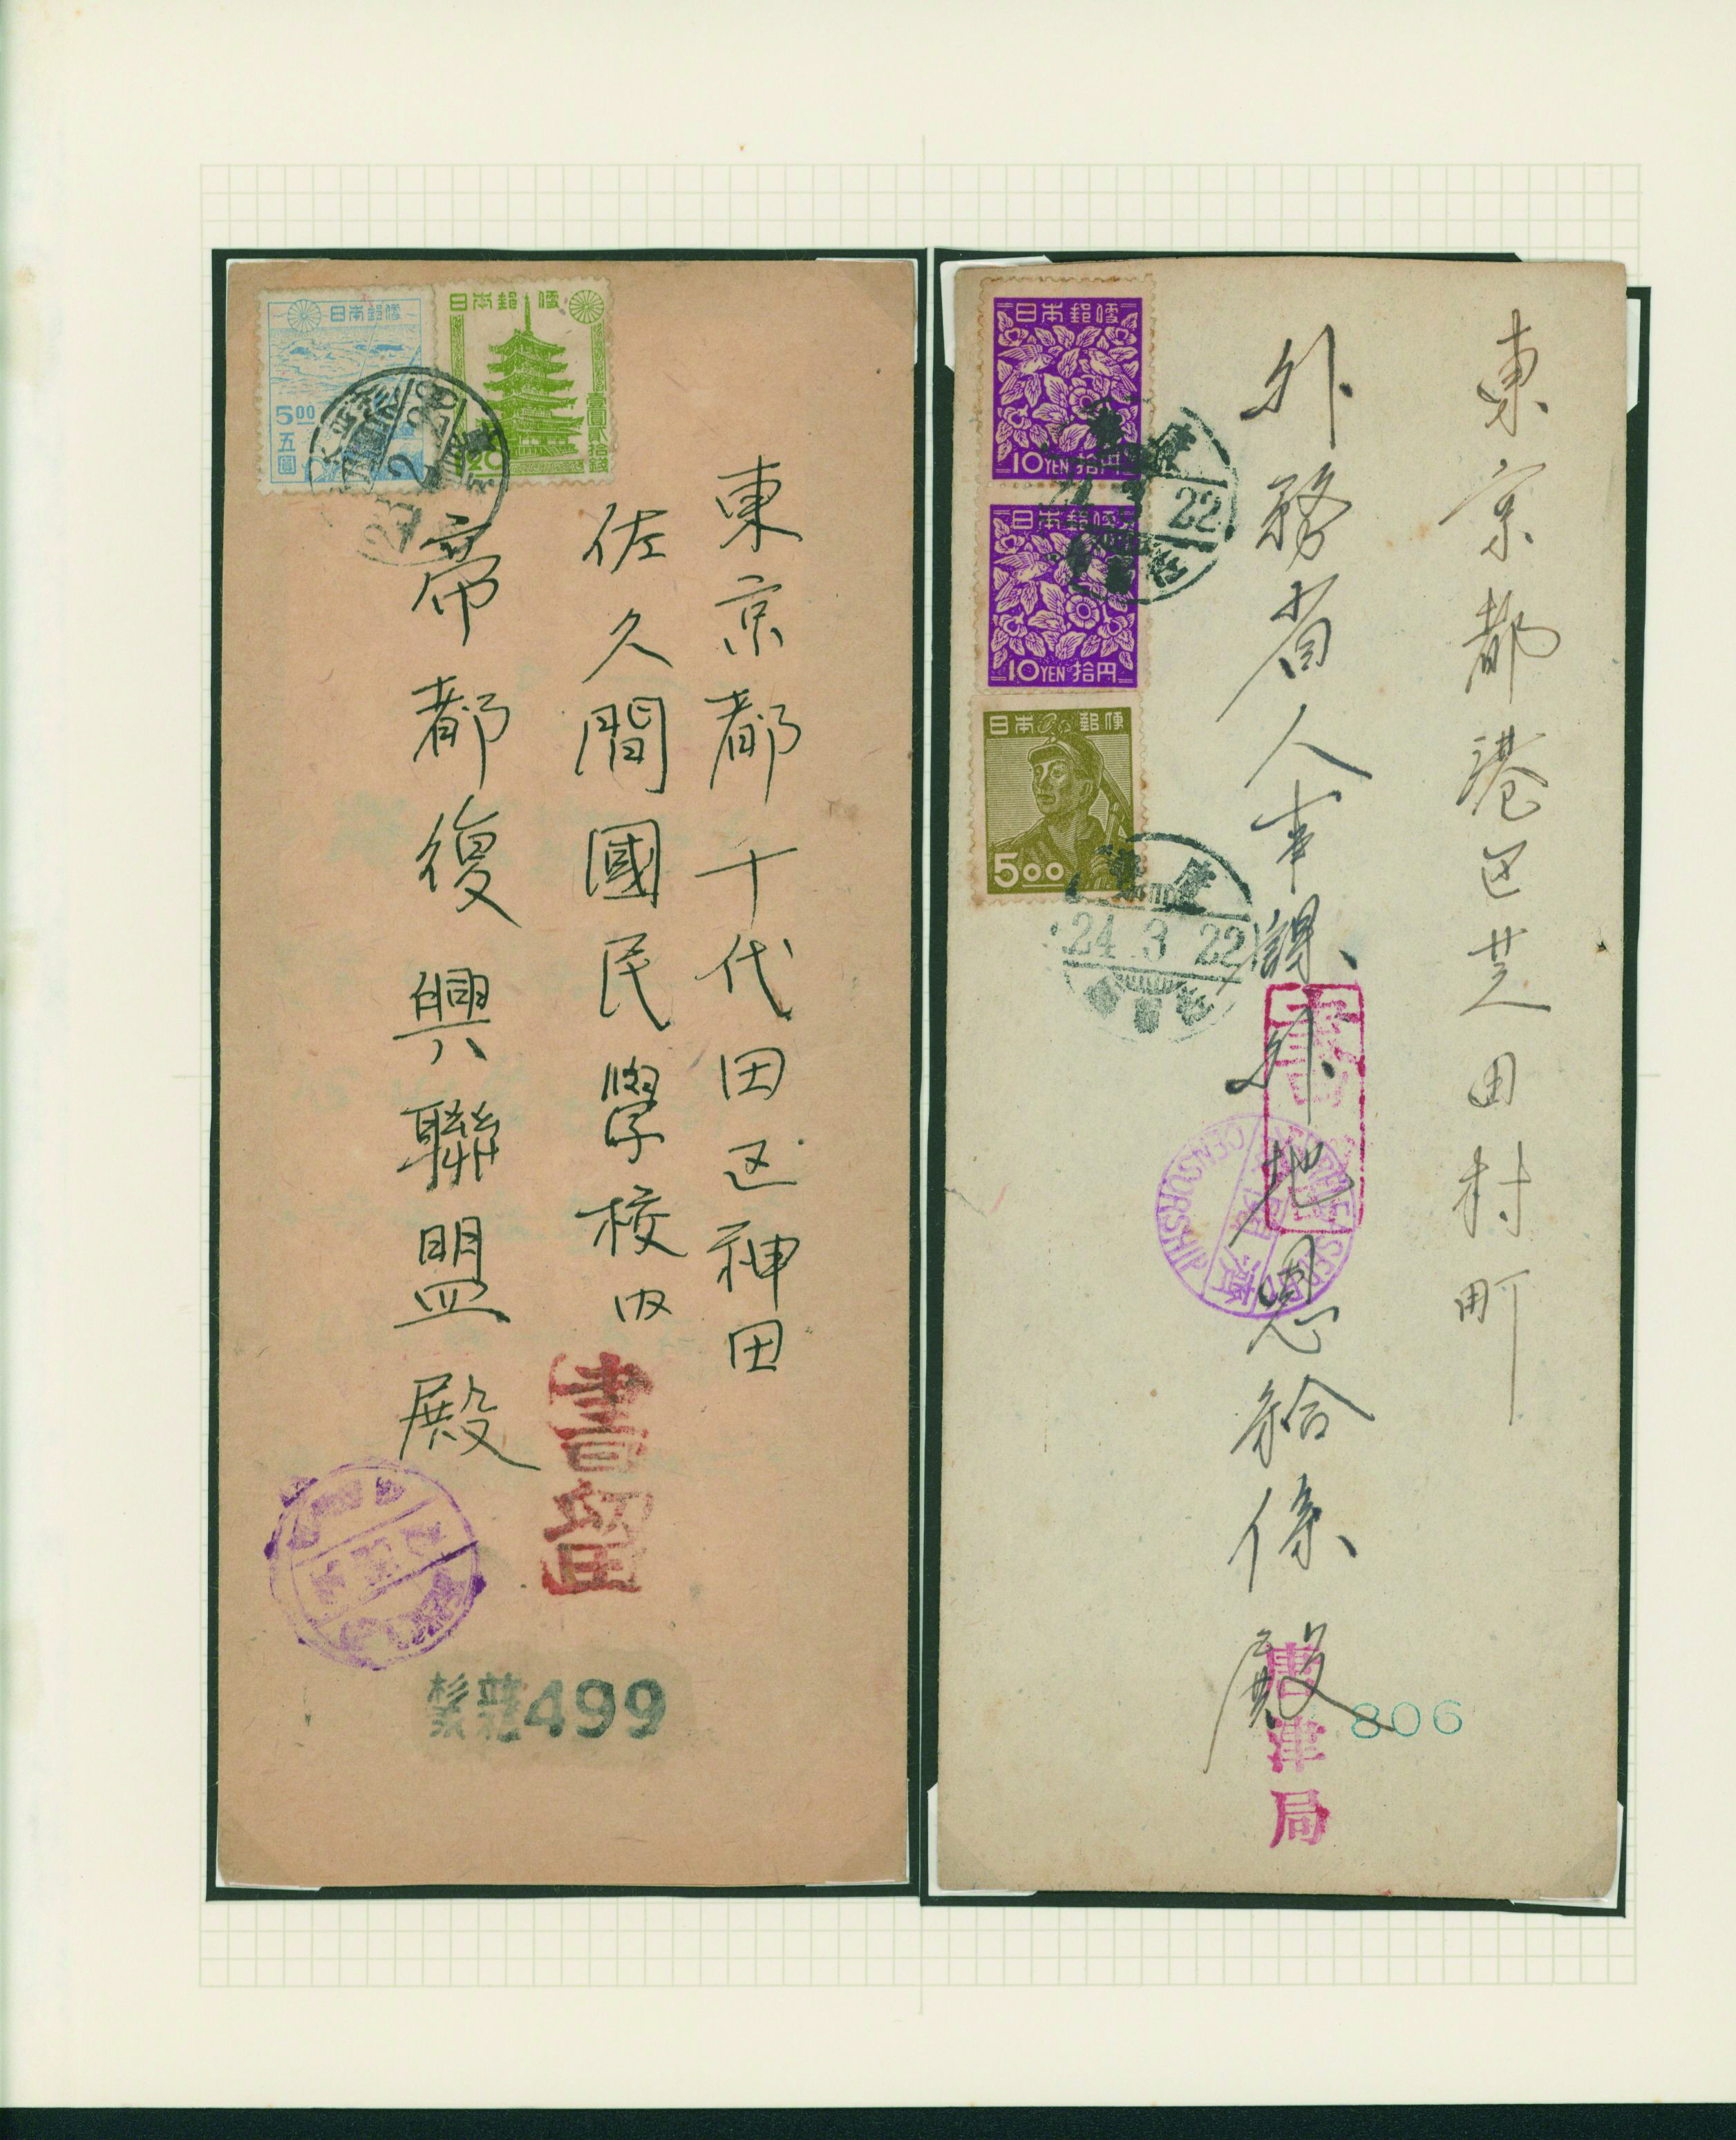 日本郵便
5.00
五圓
日本郵便
1.20
壹圓貳拾錢
東京都千代田区神田
佐久間國民學校内
帝都復興聯盟殿
書留
499
日本郵便
10YEN拾円
22
日本郵便
10YEN拾円
日本郵便
5.00
唐津
24.3.22
東京都港区芝田村町
外務省人事課外地恩給係殿
書留
唐津局
806